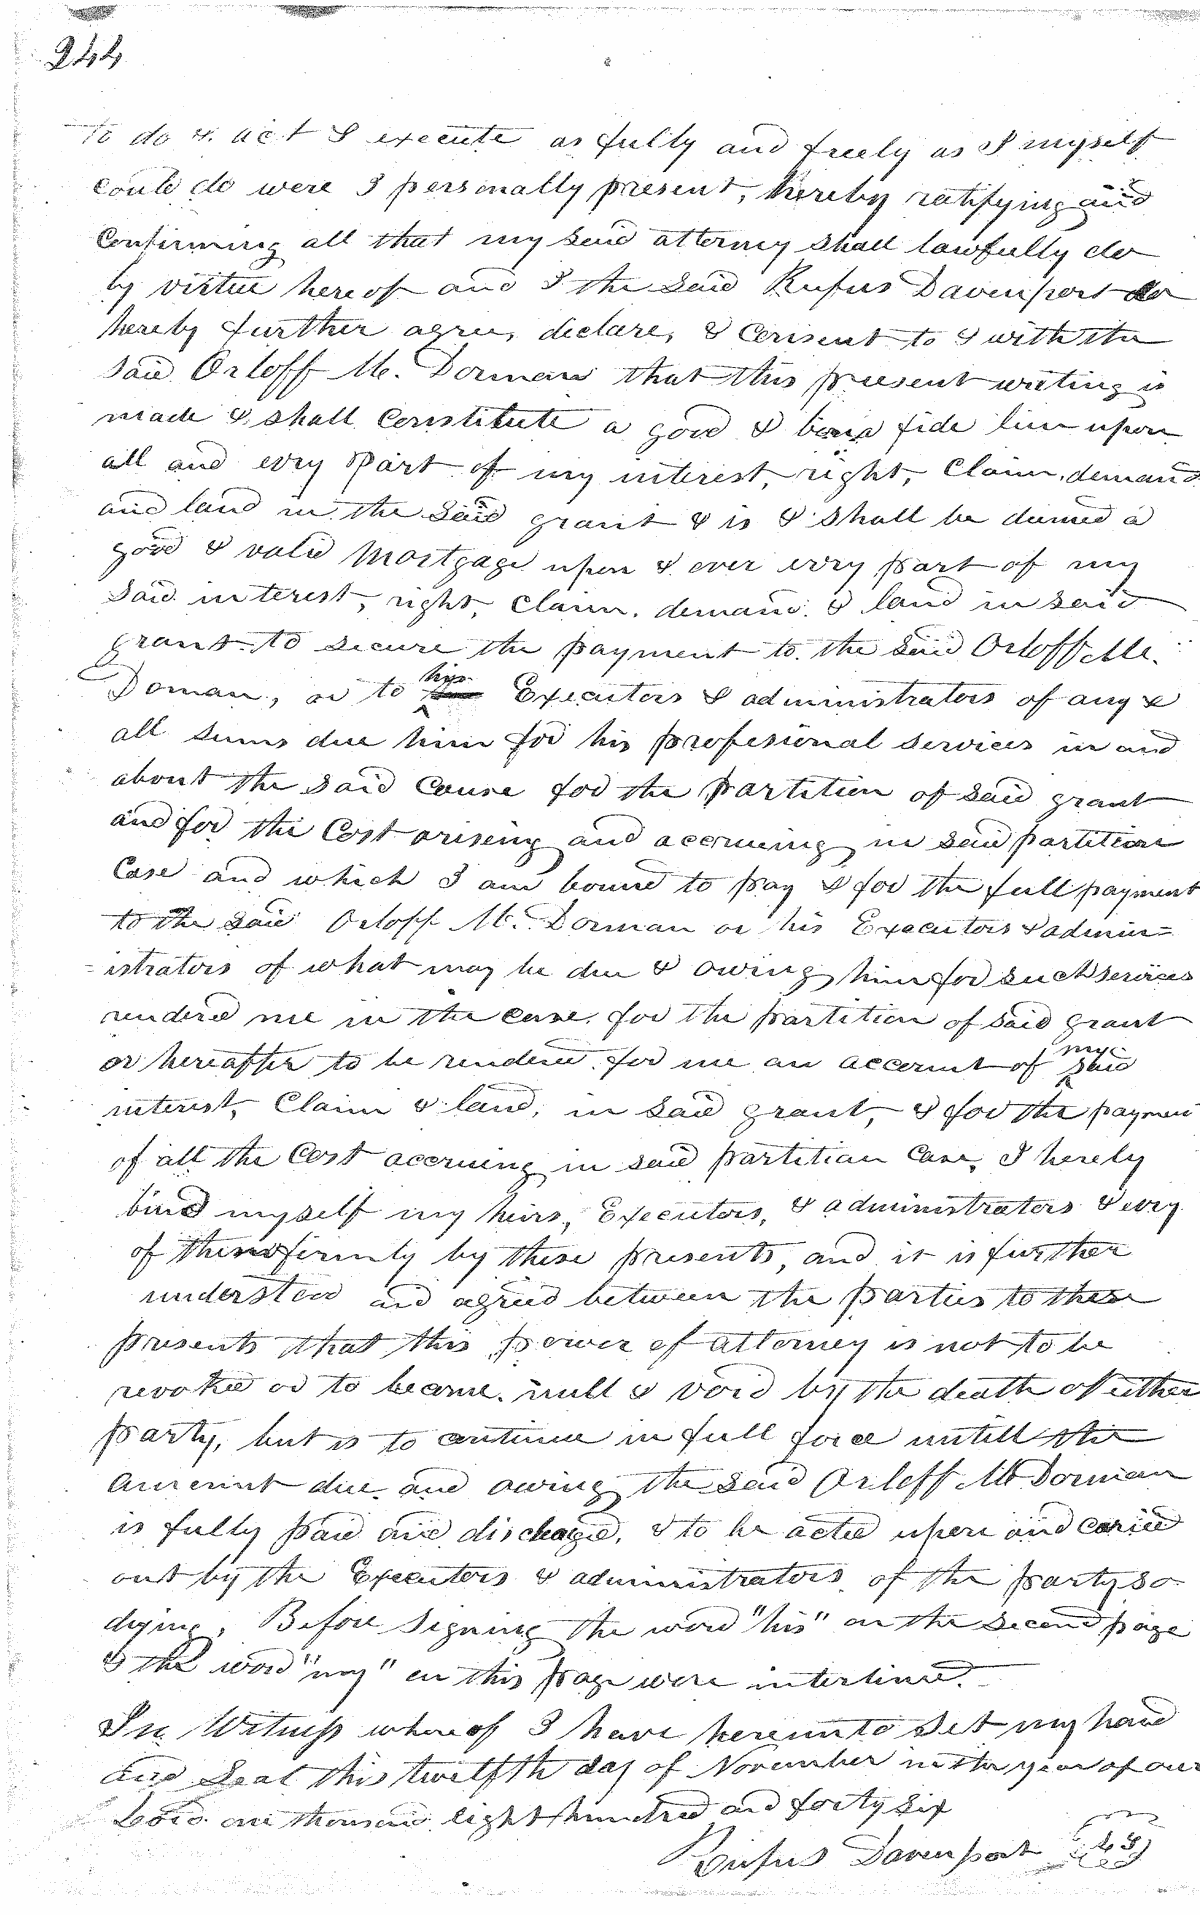 244
To do & act & execute as fully and freely as I myself
could do were I personally present, hereby ratifying and
Confirming all that my said attorney shall lawfully do
by virtue hereof and I the said Rufus Davenport do
hereby further agree, declare, & Consent to & with the
said Orloff M. Dorman that this present writing is
made & shall Constitute a good & bona fide lien upon
all and evry Part of my interest, right, Claim, demand
and land in the said grant & is & shall be deemed a
good & valid Mortgage upon & over evry part of my
said interest, right, Claim, demand & land in said
grant to secure the payment to the said Orloff M.
Doman, or to his Executors & administrators of any &
all sums due him for his profesional services in and
about the said Cause for the Partition of said grant
and for the Cost arising and accrueing in said partition
Case and which I am bound to pay & for the full payment
to the said Orloff M. Dorman or his Executors & admin=
=istrators of what may be due & owing him for such services
rendered me in the case for the partition of said grant
or hereafter to be rendered for me on account of my said
interest, Claim & land, in said grant, & for the payment
of all the Cost accruing in said partition Case, I hereby
bind myself my heirs, Executors, & administrators & evry
of them firmly by these presents, and it is further
understood and agreed between the parties to these
presents that this power of attorney is not to be
revoked or to become null & void by the death of either
party, but is to continue in full force untill the
amount due and owing the said Orloff M Dorman
is fully paid and discharged, & to be acted upon and caried
out by the Executors & administrators of the party so
dying, Before signing the word "his" on the second page
& the word "my" on this page were interlined.
In Witness whereof I have hereunto set my hand
and Seal this twelfth day of November in the year of our
Lord one thousand eight hundred and forty six
Rufus Davenport (LS)